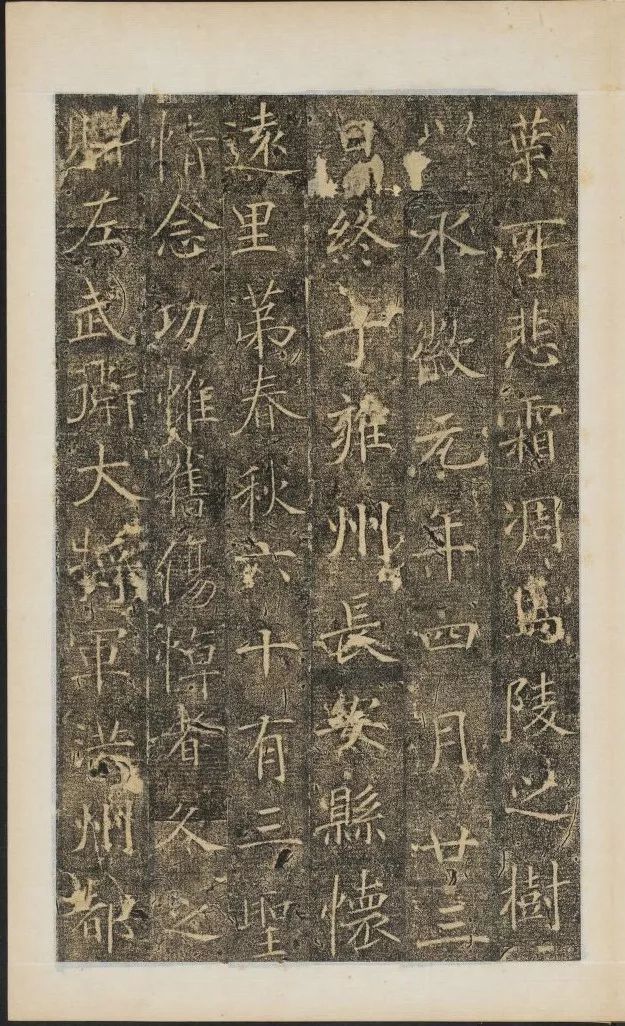 葉可悲霜凋馬陵之樹
以永徽元年四月廿三
日終于雍州長安縣懷
遠里第春秋六十有三聖
情念功惟舊傷悼者久之
贈左武衛大將軍洪州都